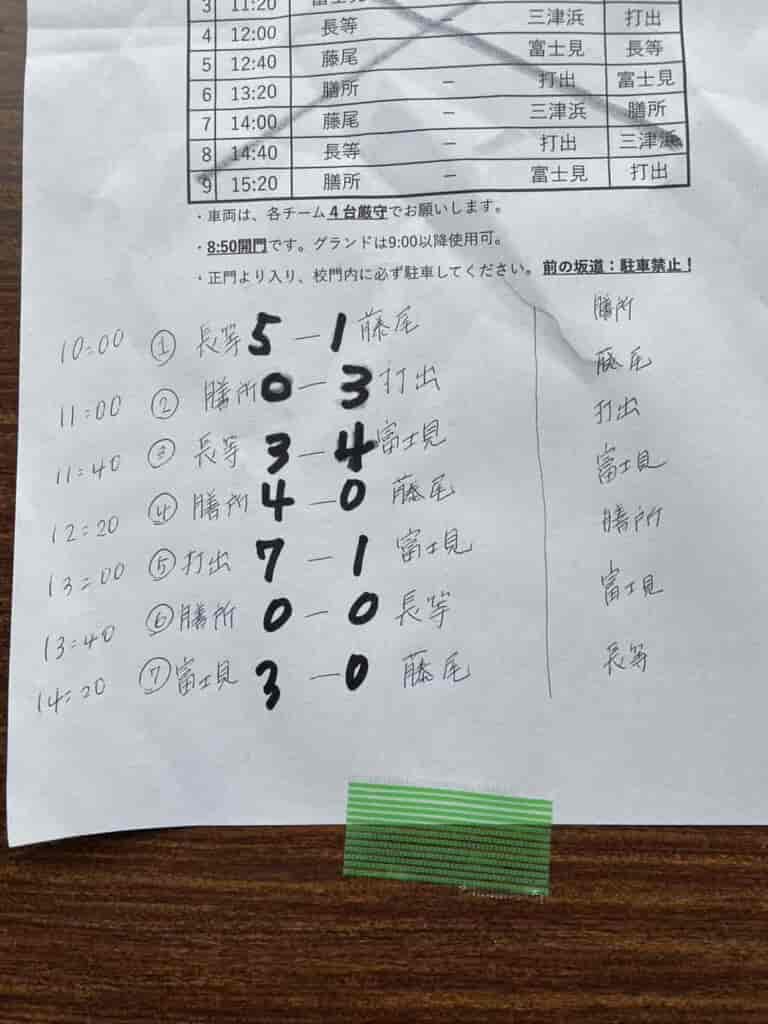 3 11:20 富士見
4 12:00 長等 三津浜 打出
5 12:40 藤尾 富士見 長等
6 13:20 膳所 － 打出 富士見
7 14:00 藤尾 － 三津浜 膳所
8 14:40 長等 － 打出 三津浜
9 15:20 膳所 － 富士見 打出
・車両は、各チーム４台厳守でお願いします。
・8:50開門です。グランドは9:00以降使用可。
・正門より入り、校門内に必ず駐車してください。 前の坂道：駐車禁止！
10:00 ① 長等 5 － 1 藤尾 膳所
11:00 ② 膳所 0 － 3 打出 藤尾
11:40 ③ 長等 3 － 4 富士見 打出
12:20 ④ 膳所 4 － 0 藤尾 富士見
13:00 ⑤ 打出 7 － 1 富士見 膳所
13:40 ⑥ 膳所 0 － 0 長等 富士見
14:20 ⑦ 富士見 3 － 0 藤尾 長等